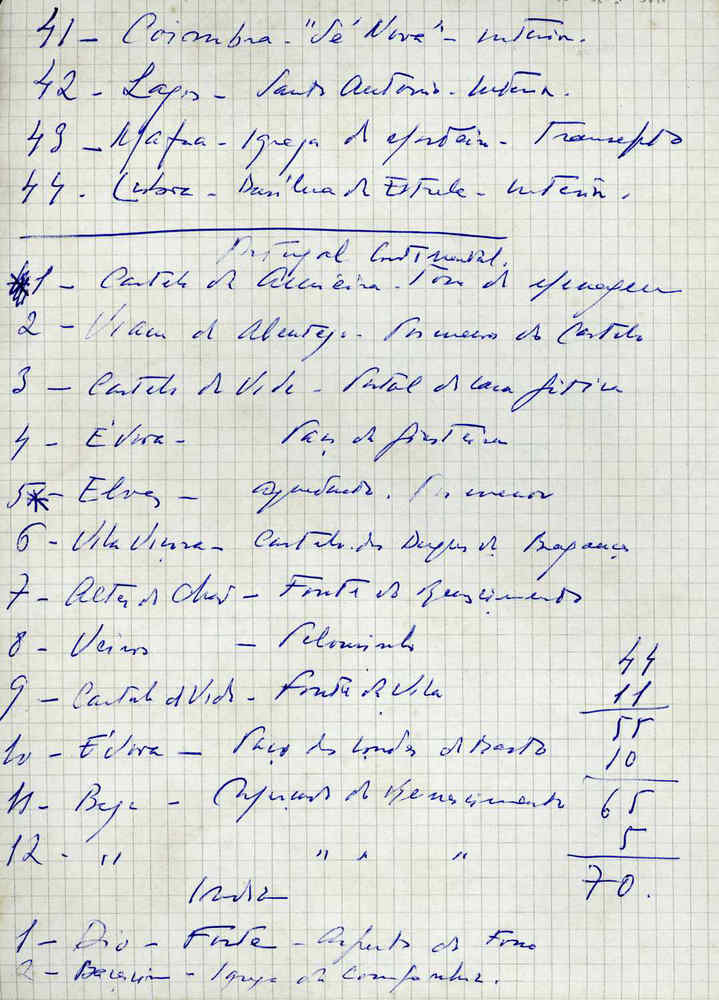 41 - Coimbra - "Sé Nova" - interior.
42 - Lagos - Santo António - Interior.
43 - Mafra - Igreja do Mosteiro - Transepto
44 - Lisboa - Basílica da Estrela - interior.
Portugal Continental.
1 - Castelo de Amieira - Torre de Menagem
2 - Viana do Alentejo - Pormenores do Castelo
3 - Castelo de Vide - Portal de casa gótica
4 - Évora - Paço de
5 - Elvas - aqueduto. Pormenor
6 - Vila Viçosa - Castelo dos Duques de Bragança
7 - Alter do Chão - Fonte do Renascimento
8 - Veiros - Pelourinho
44
9 - Castelo de Vide - Fonte da Vila
11
55
10 - Évora - Paço dos Condes de Basto
10
11 - Beja - do Renascimento
65
5
12 - " " " "
70.
India
1 - Dio - Forte - Aspecto do Fosso
2 - Baçaim - Igreja da Companhia.